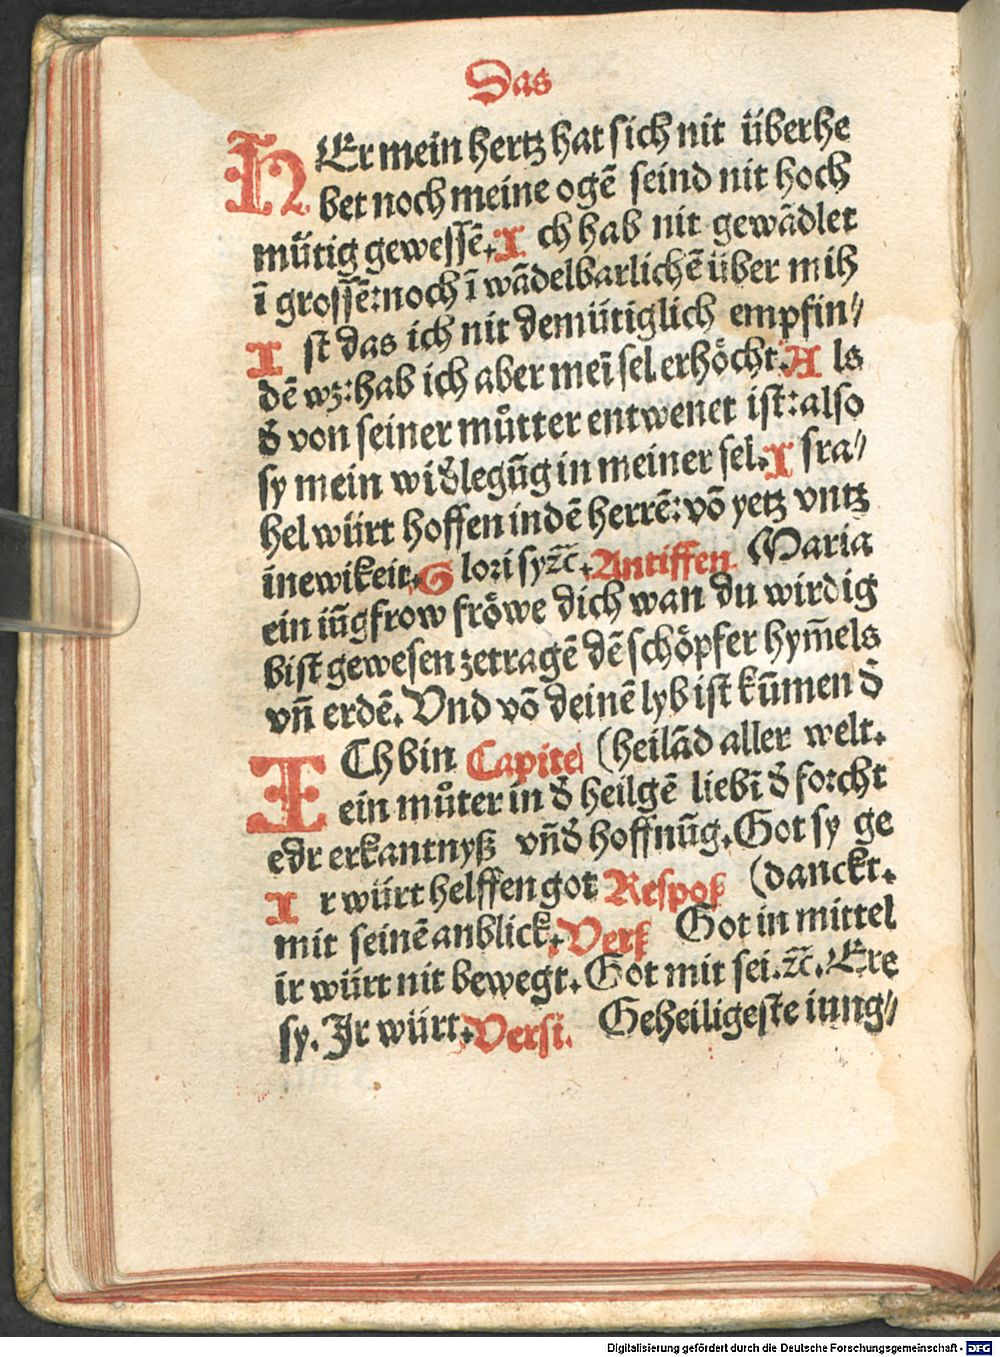 Das
HEr mein hertz hat sich nit überhe
bet noch meine ogē seind nit hoch
mütig gewessē. Ich hab nit gewādlet
ī grossē: noch ī wādelbarlichē über mih
Ist das ich nit demütiglich empfin⸗
dē wz: hab ich aber meī sel erhöcht. Als
đ von seiner můtter entwenet ist: also
sy mein widđlegūg in meiner sel. Isra⸗
hel würt hoffen in dē herrē: vō yetz vntz
īnewikeit. Glori sy ꝛc̄. Antiffen Maria
ein iūgfrow fröwe dich wan du wirdig
bist gewesen zetragē dē schöpfer hym̄els
vn̄ erdē. Vnd vō deinē lyb ist kūmen đ
ICh bin Capitel (heilād aller welt.
ein můter in đ heilgē liebī đ forcht
edr erkantnyß vn̄ đ hoffnūg. Got sy ge
Ir würt helffen got Respoſ (danckt.
mit seinē anblick. Verſ Got in mittel
ir würt nit bewegt. Got mit sei. ꝛc̄. Ere
sy. Ir würt. Versi. Geheiligeste iung⸗
Digitalisierung gefördert durch die Deutsche Forschungsgemeinschaft - DFG